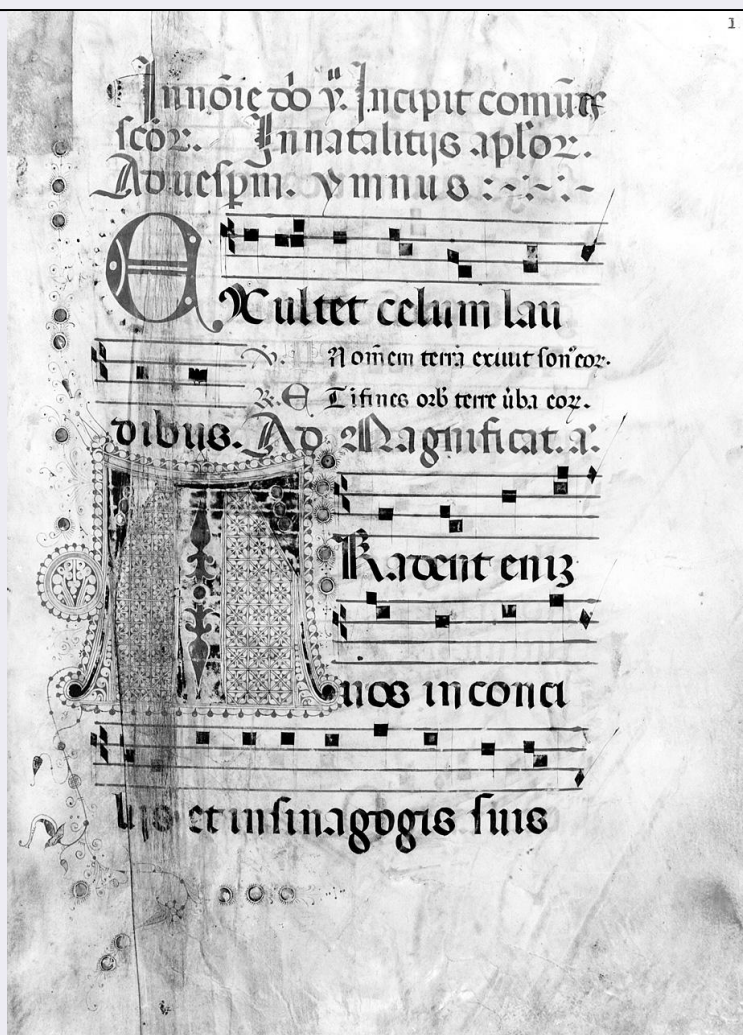 1
In nōie dō v̄. Incipit comūe
scōꝝ. In natalitijs aplōꝝ.
Ad uesꝑm. ymnus :~:~:~
EXultet celum lau
V. In omēm terrā exiuit son⁹ eoꝝ.
R. ET i fines orb̄ terre ūba eoꝝ.
dibus. Ad Magnificat. a.
TRadent eniꝫ
uos in conci
lijs et in sinagogis suis